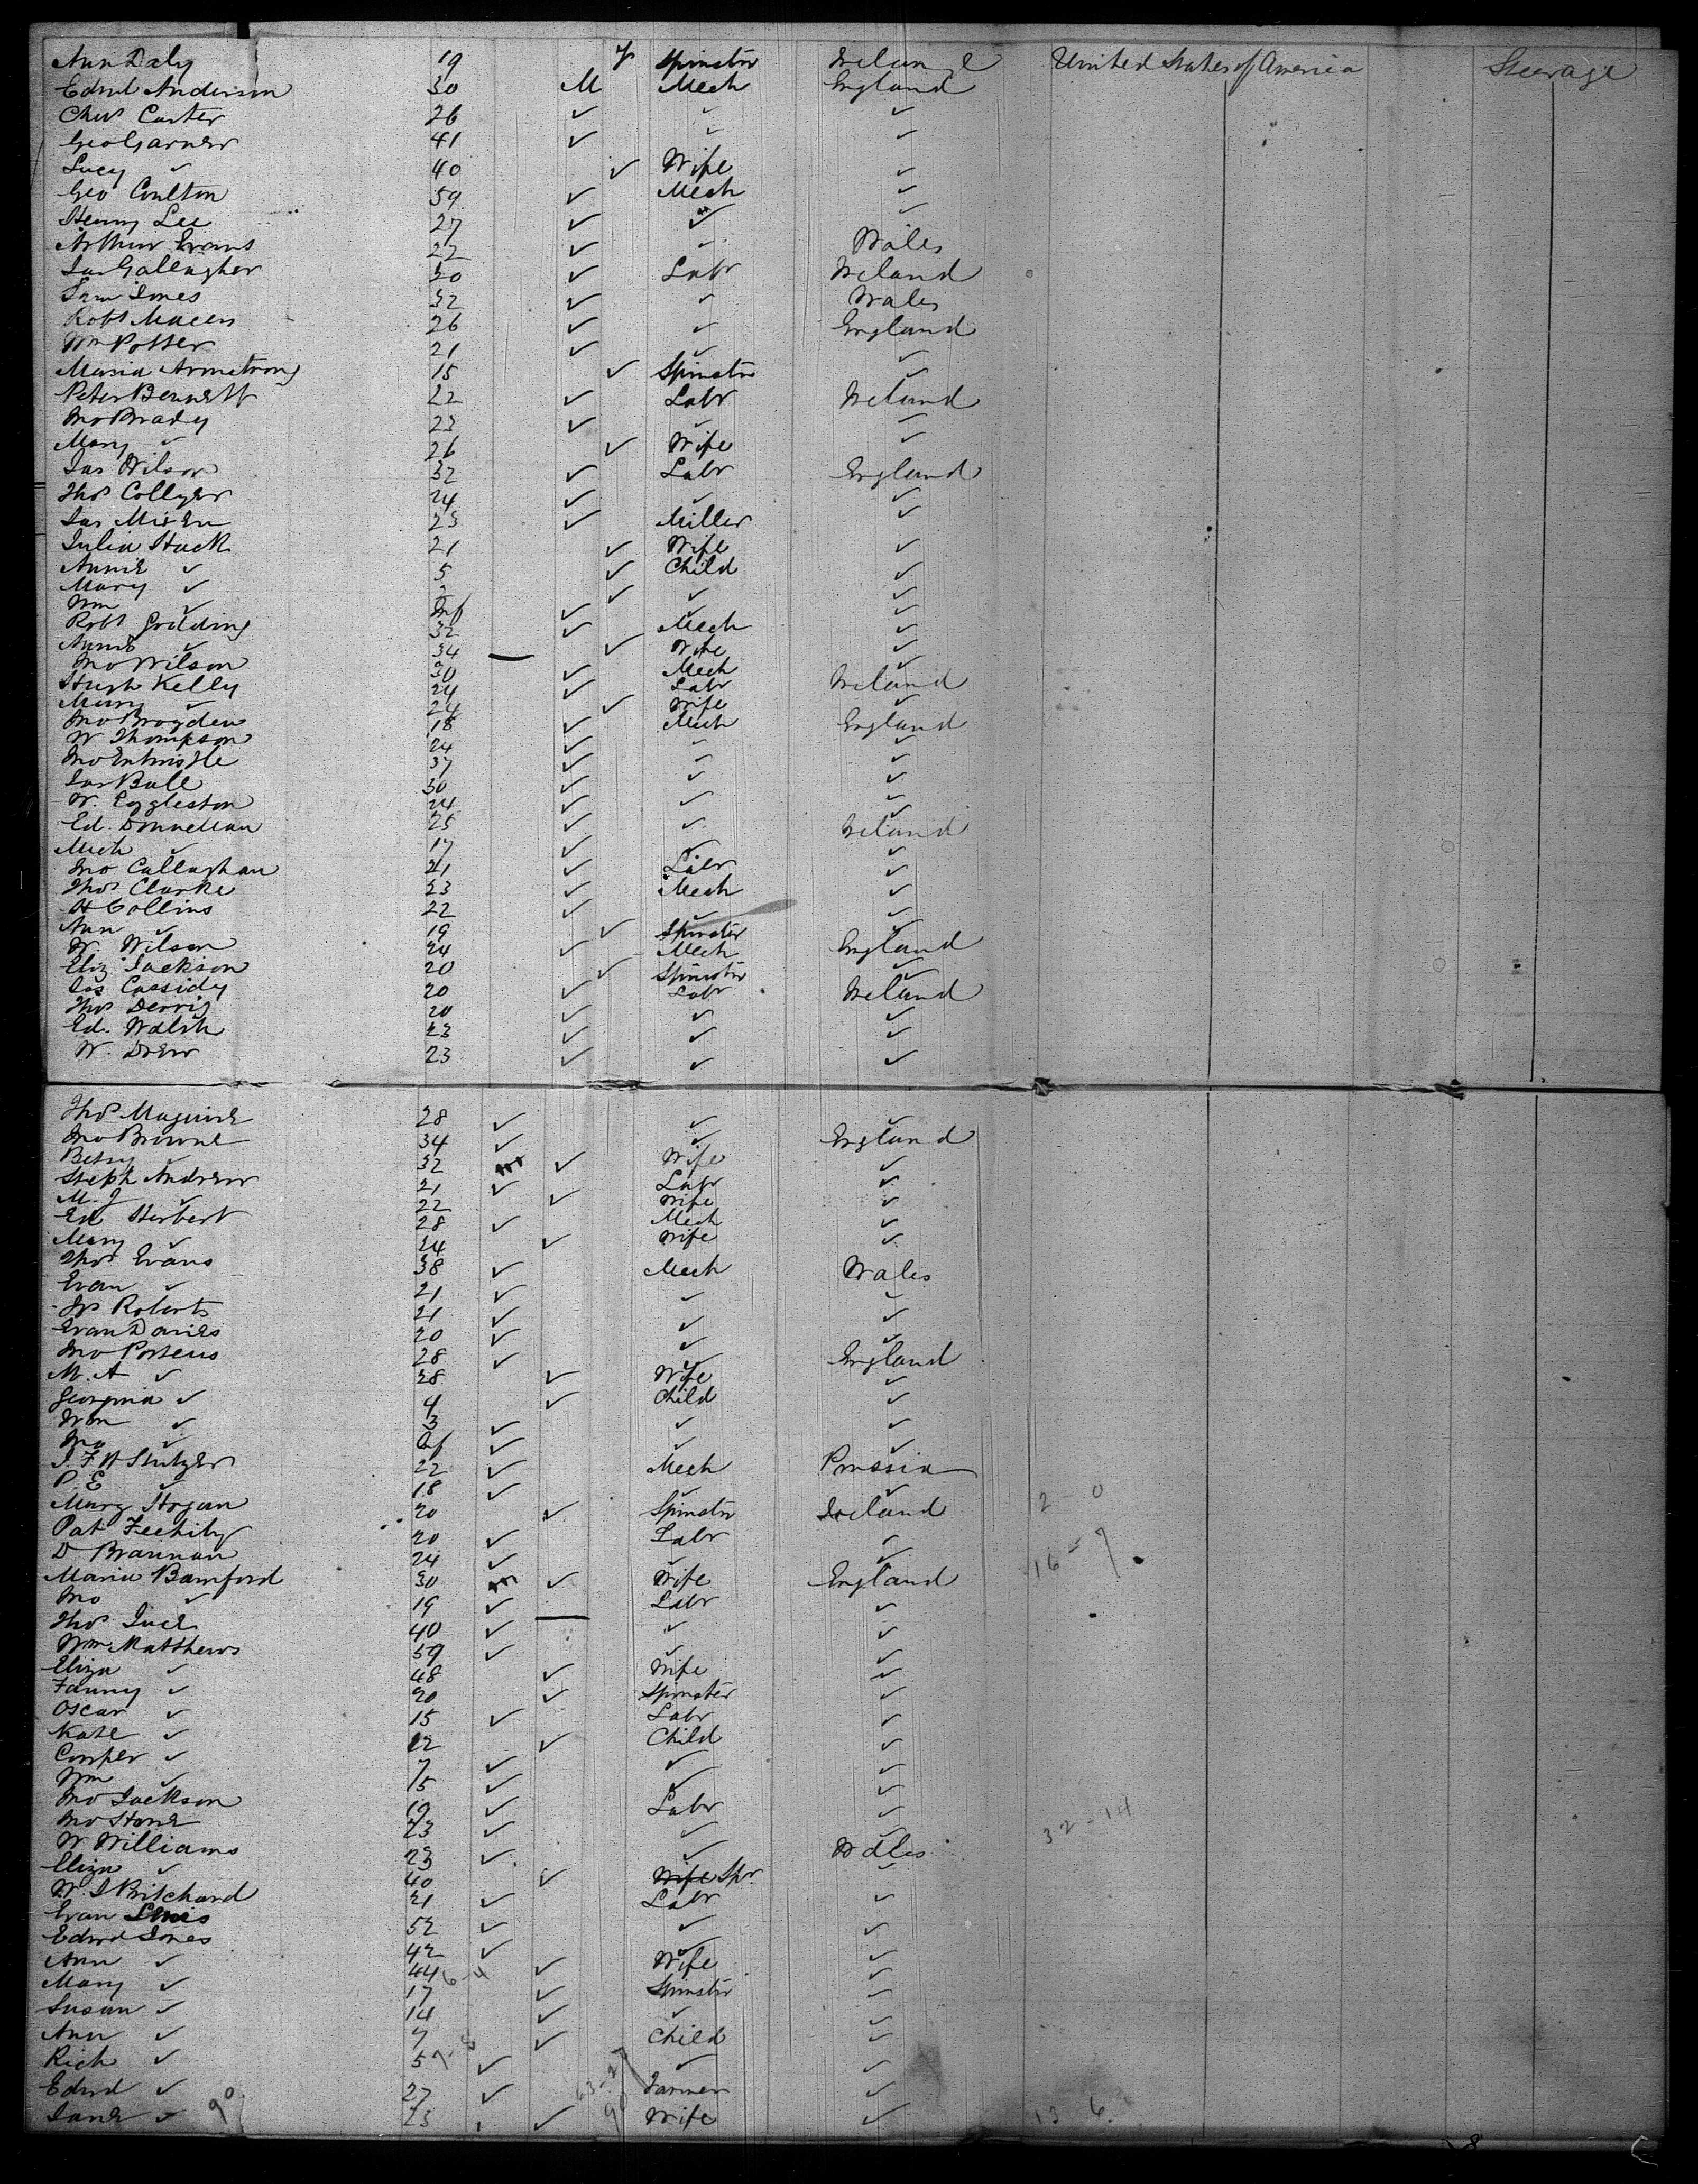 Ann Daly 19 F Spinster Ireland United States of America Steerage
Edwd Anderson 30 M Mech England
Chas Carter 26 ✓ ✓ ✓
Geo Garner 41 ✓ ✓ ✓
Lucy ✓ 40 ✓ Wife ✓
Geo Coulton 59 ✓ Mech ✓
Henry Lee 27 ✓ ✓ ✓
Arthur Evans 22 ✓ ✓ Wales
Jas Gallagher 20 ✓ Labr Ireland
Sam Jones 32 ✓ ✓ Wales
Robt 26 ✓ ✓ England
Wm Potter 21 ✓ ✓ ✓
Maria Armstrong 15 ✓ Spinster ✓
Peter Bennett 22 ✓ Labr Ireland
Jno Brady 23 ✓ ✓ ✓
Mary ✓ 26 ✓ Wife ✓
Jas Wilson 32 ✓ Labr England
Thos Collyer 24 ✓ ✓ ✓
Jas 23 ✓ Miller ✓
Julia Hack 21 ✓ Wife ✓
Annie ✓ 5 ✓ Child ✓
Mary ✓ ✓ ✓ ✓
Wm ✓ Inf ✓ ✓
Robt Goulding 32 ✓ Mech ✓
Annie ✓ 34 ✓ Wife ✓
Jno Wilson 30 ✓ Mech ✓
Hugh Kelly 24 ✓ Labr Ireland
Mary ✓ 24 ✓ Wife ✓
Jno Brogden 18 ✓ Mech England
W Thompson 24 ✓ ✓ ✓
Jno Entwistle 37 ✓ ✓ ✓
Jas Ball 30 ✓ ✓ ✓
W. Eggleston 24 ✓ ✓ ✓
Ed. Donnellan 25 ✓ ✓ Ireland
Mich ✓ 17 ✓ ✓ ✓
Jno Callaghan 21 ✓ Labr ✓
Thos Clarke 23 ✓ Mech ✓
H Collins 22 ✓ ✓ ✓
Ann ✓ 19 ✓ Spinster ✓
W. Wilson 24 ✓ Mech England
Eliz. Jackson 20 ✓ Spinster ✓
Jas Cassidy 20 ✓ Labr Ireland
Thos Derrig 20 ✓ ✓ ✓
Ed. Walsh 23 ✓ ✓ ✓
W. Drew 23 ✓ ✓ ✓
Thos Maguire 28 ✓ ✓ ✓
Jno Browne 34 ✓ ✓ England
Betsy ✓ 32 ✓ Wife ✓
Steph Andrew 21 ✓ Labr ✓
M. J ✓ 22 ✓ Wife ✓
Ed Herbert 28 ✓ Mech ✓
Mary ✓ 24 ✓ Wife ✓
Thos Evans 38 ✓ Mech Wales
Evan ✓ 21 ✓ ✓ ✓
Roberts 21 ✓ ✓ ✓
Evan Davies 20 ✓ ✓ ✓
Jno Porteus 28 ✓ ✓ England
M. A ✓ 28 ✓ Wife ✓
Georgina ✓ 4 ✓ Child ✓
Wm ✓ 3 ✓ ✓ ✓
Jno ✓ Inf ✓ ✓ ✓
J. F. H Stutzer 22 ✓ Mech Prussia
P. E ✓ 18 ✓ ✓ ✓
Mary Hogan 20 ✓ Spinster Ireland 2 - 0
Pat 20 ✓ Labr ✓
D Brannan 24 ✓ ✓ ✓ 16 - 7
Maria Bamford 30 ✓ Wife England
Jno ✓ 19 ✓ Labr ✓
Thos Luck 40 ✓ ✓ ✓
Wm Matthews 59 ✓ ✓ ✓
Eliza ✓ 48 ✓ Wife ✓
Fanny ✓ 20 ✓ Spinster ✓
Oscar ✓ 15 ✓ Labr ✓
Kate ✓ 12 ✓ Child ✓
Cowper ✓ 7 ✓ ✓ ✓
Wm ✓ 15 ✓ ✓ ✓
Jno Jackson 19 ✓ Labr ✓
Jno Stone 23 ✓ ✓ ✓ 32 - 14
W Williams 23 ✓ ✓ Wales
Eliza ✓ 40 ✓ Wife Spr ✓
W. J Pritchard 21 ✓ Labr ✓
Evan Lewis 52 ✓ ✓ ✓
Edwd Jones 42 ✓ ✓ ✓
Ann ✓ 44 6-4 ✓ Wife ✓
Mary ✓ 17 ✓ Spinster ✓
Susan ✓ 14 ✓ ✓ ✓
Ann ✓ 7 ✓ Child ✓
Rich ✓ 5 ✓ ✓ ✓
Edwd ✓ 27 ✓ 63-27 Farmer ✓
Jane ✓ 90 23 ✓ 90 Wife ✓ 13 6.